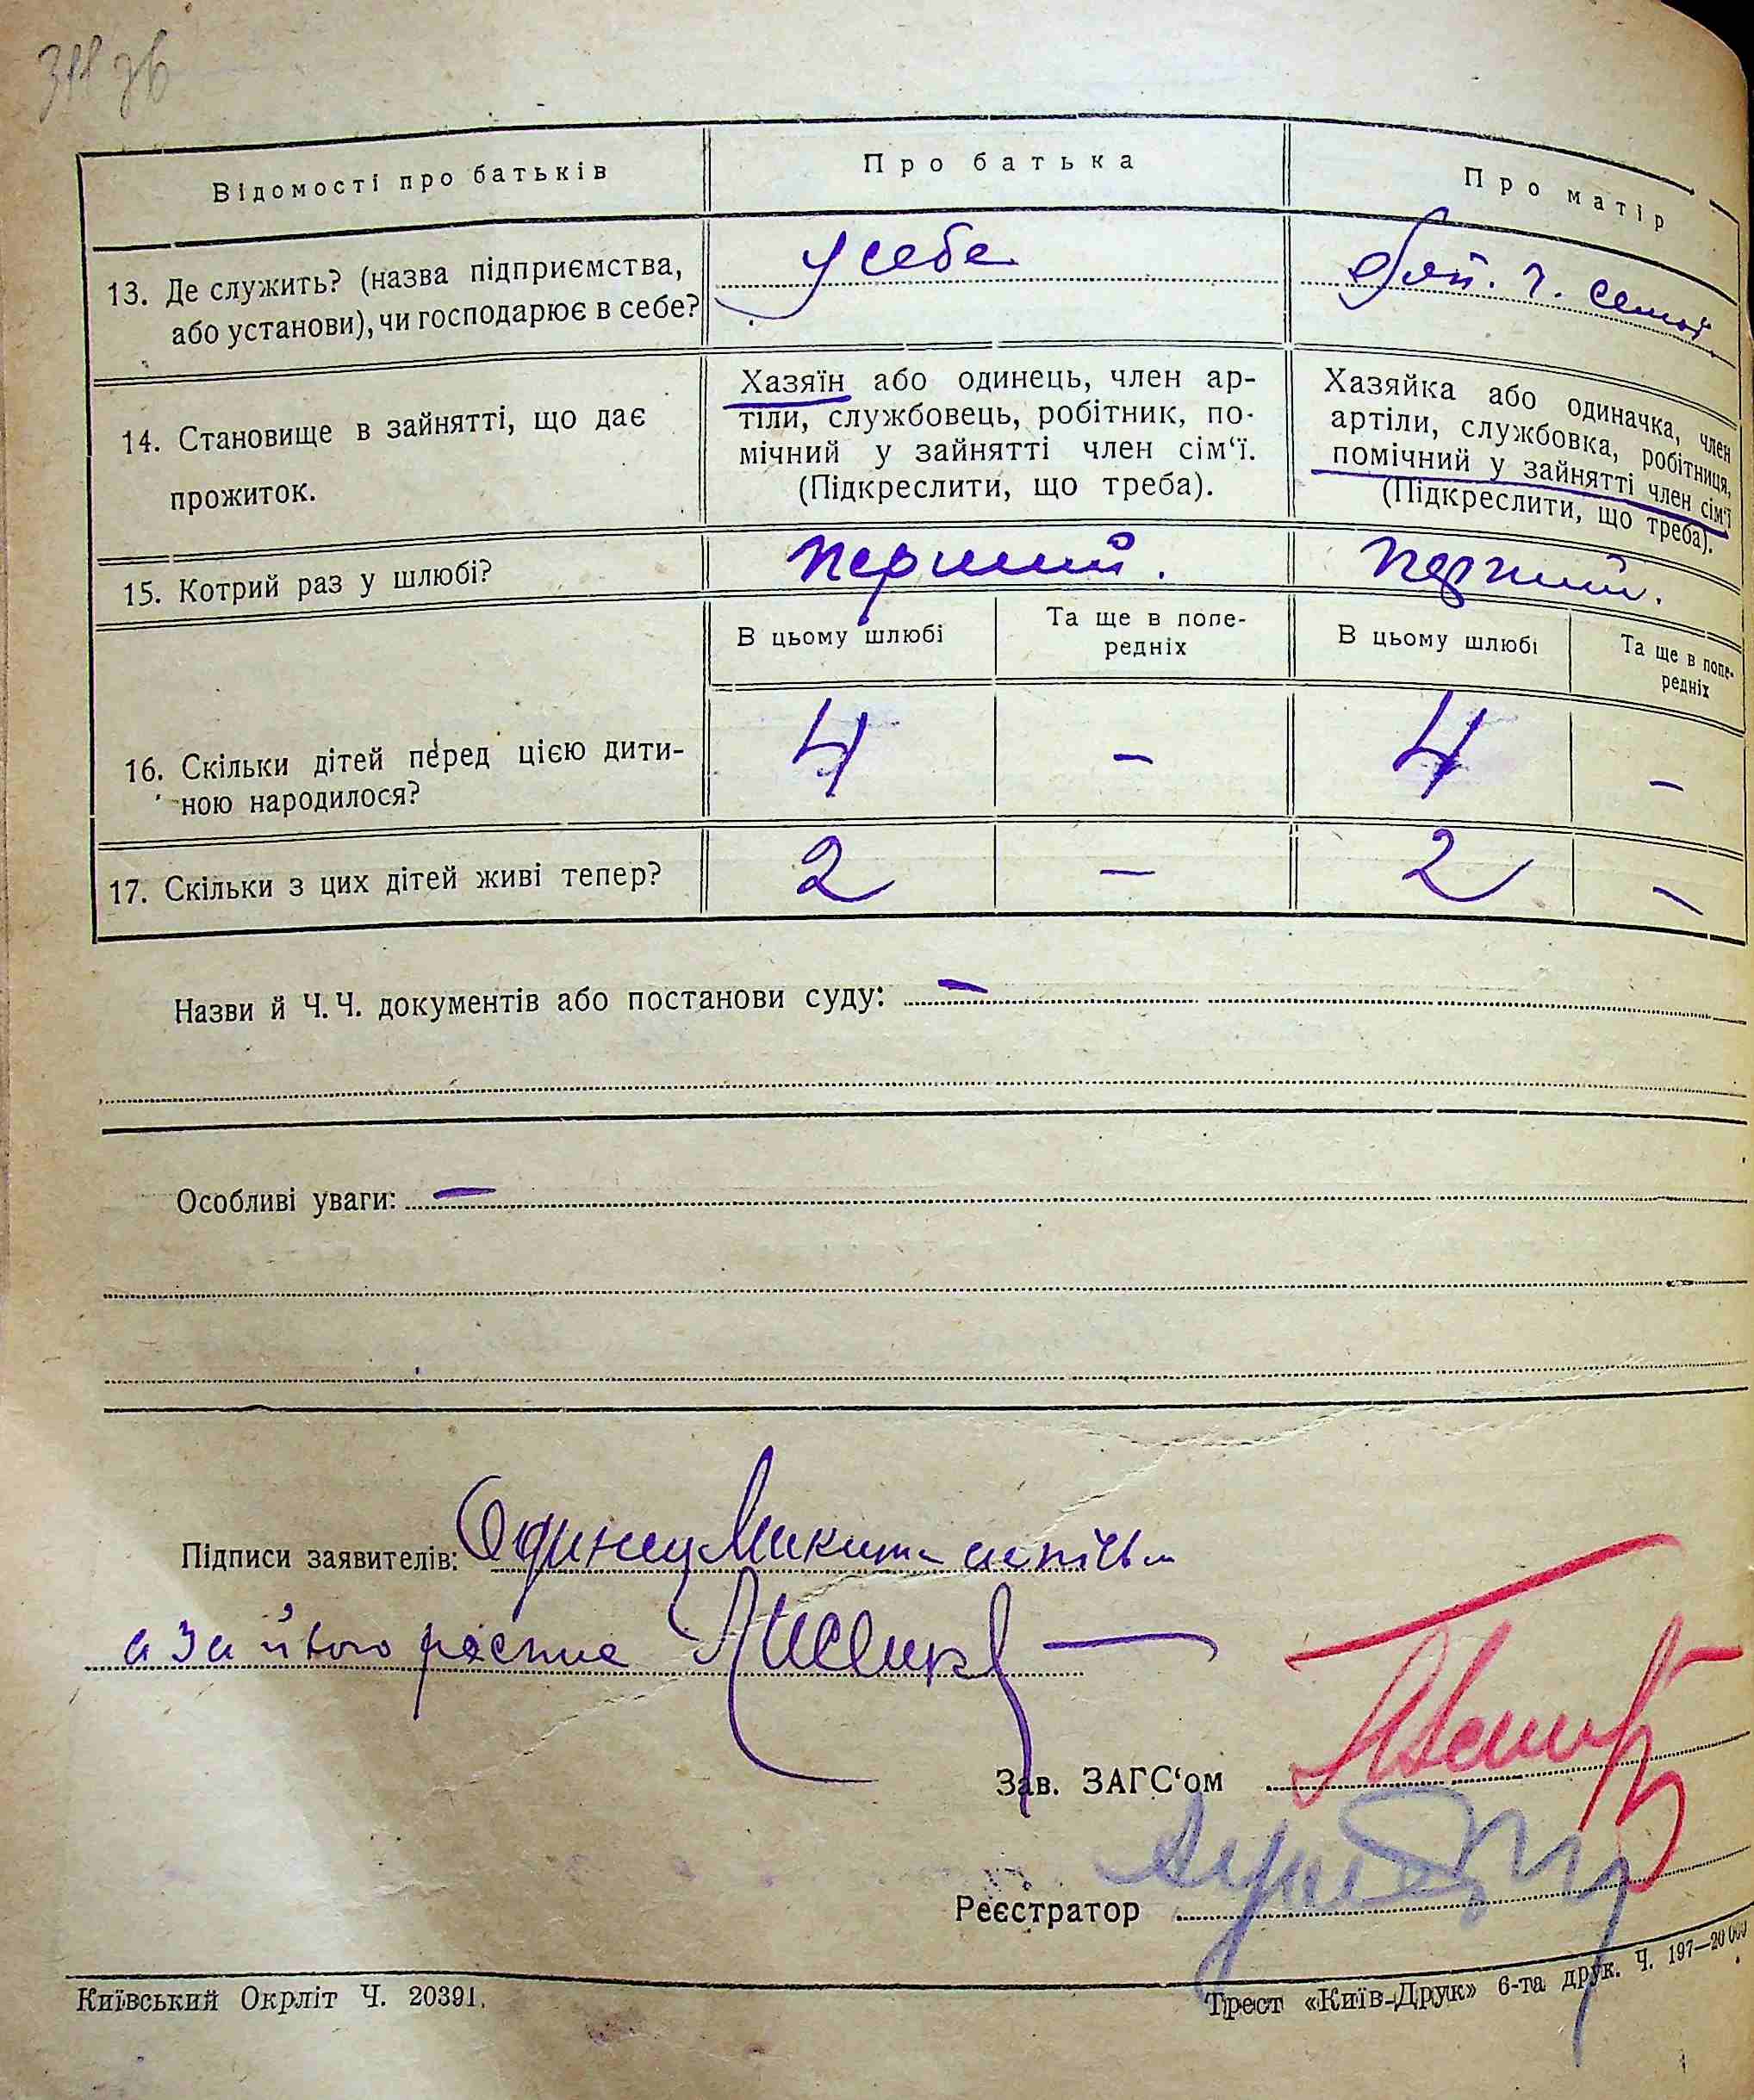 Відомості про батьків
Про батька
Про матір
13. Де служить? (назва підприємства,
або установи), чи господарює в себе?
у себе
Хазяїн або одинець, член ар-
тіли, службовець, робітник, по-
мічний у зайнятті член сім‘ї.
(Підкреслити, що треба).
Хазяйка або одиначка, член
артіли, службовка, робітниця,
помічний у зайнятті член сім‘ї
(Підкреслити, що треба).
14. Становище в зайнятті, що дає
прожиток.
15. Котрий раз у шлюбі?
перший.
перший.
В цьому шлюбі
Та ще в попе-
редніх
В цьому шлюбі
Та ще в попе-
редніх
16. Скільки дітей перед цією дити-
ною народилося?
4 – 4 –
17. Скільки з цих дітей живі тепер? 2 – 2 –
Назви й Ч. Ч. документів або постанови суду: –
Особливі уваги: –
Підписи заявителів: Одинец Микита
а за його
Зав. ЗАГС‘ом
Реєстратор
Київський Окрліт Ч. 20391.
Трест «Київ-Друк» 6-та друк. Ч. 197—20 000